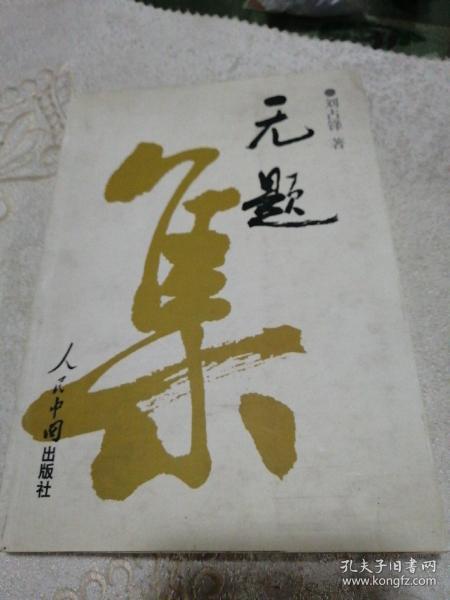 ●刘占锋 著
无题
集
人民中国出版社
孔夫子旧书网
www.kongfz.com